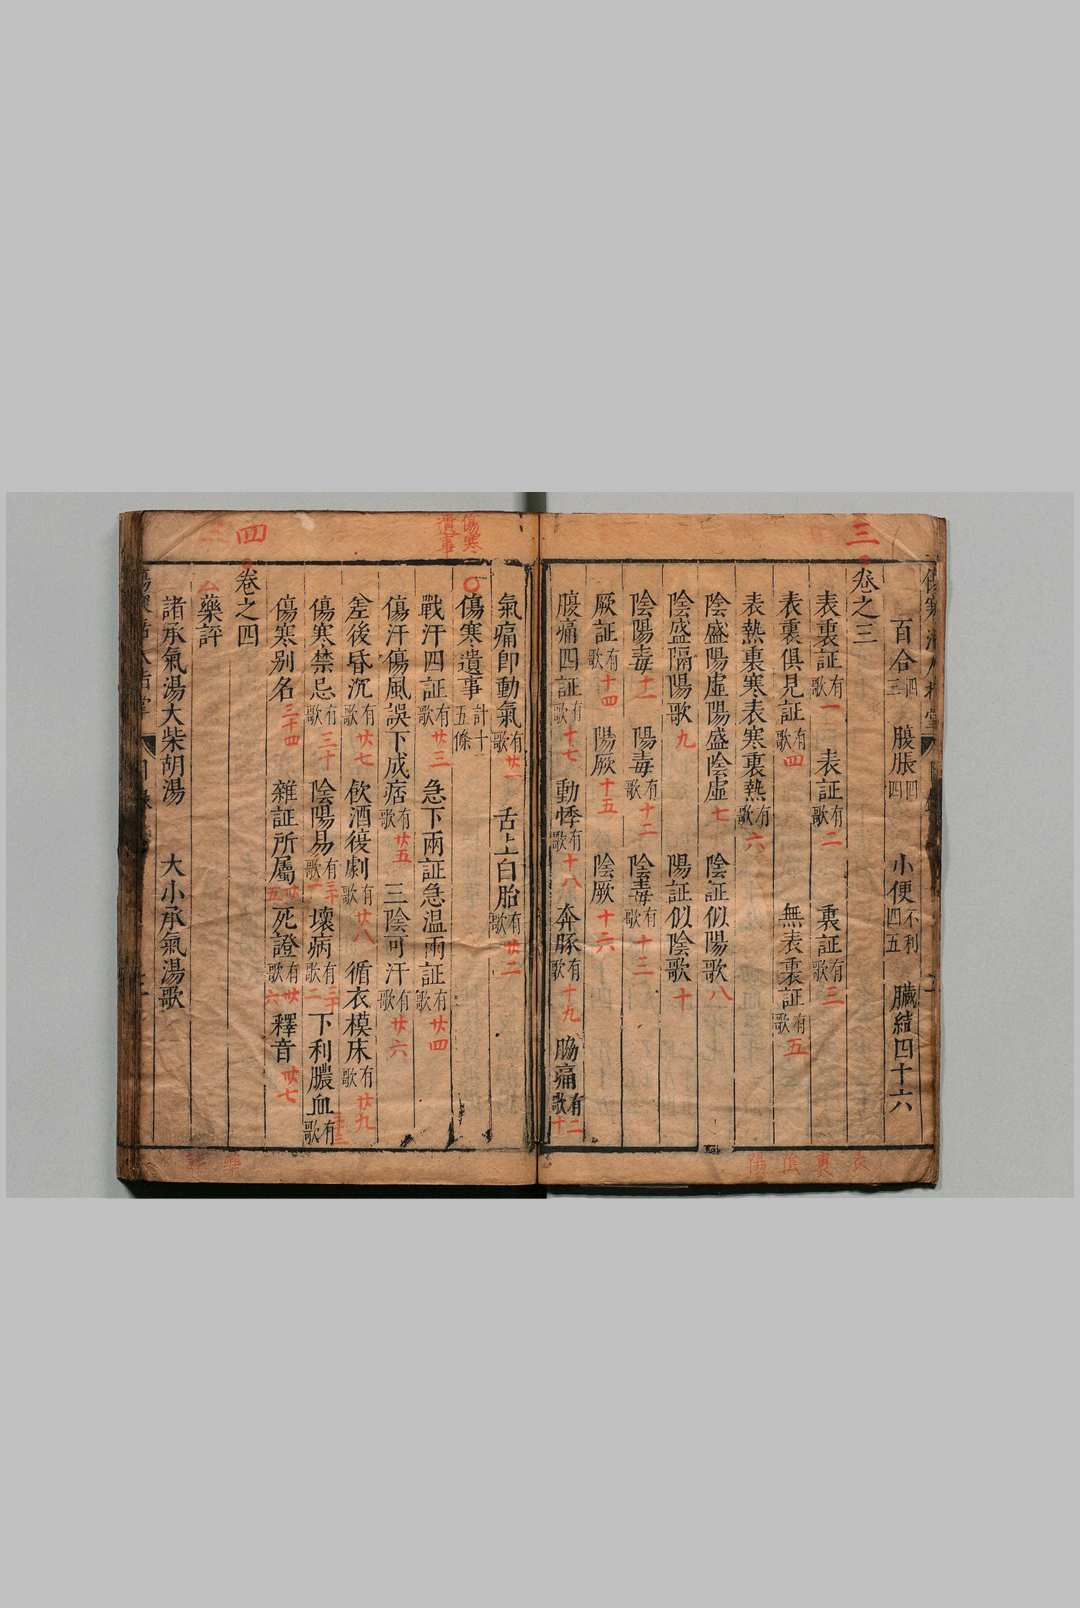 三
百合四三 腹脹四四 小便不利四五 臟結四十六
卷之三
表裏証有歌一 表証有歌二 裏証有歌三
表裏俱見証有歌四 無表裏証有歌五
表熱裏寒表寒裏熱有歌六
陰盛陽虛陽盛陰虛七 陰証似陽歌八
陰盛隔陽歌九 陽証似陰歌十
陰陽毒十一 陽毒有歌十二 陰毒有歌十三
厥証有歌十四 陽厥十五 陰厥十六
腹痛四証有歌十七 動悸有歌十八 奔豚有歌十九 脇痛有歌二十
表裏陰陽
傷寒遺事
四
氣痛卽動氣有歌廿一 舌上白胎有歌廿二
傷寒遺事計十五條
戰汗四証有歌廿三 急下兩証急温兩証有歌廿四
傷汗傷風誤下成痞有歌廿五 三陰可汗有歌廿六
差後昏沉有歌廿七 飲酒復劇有歌廿八 循衣模床有歌廿九
傷寒禁忌有歌三十 陰陽易有歌三十一 壞病有歌三十二 下利膿血有歌
傷寒别名三十四 雜証所屬卅五 死證有歌卅六 釋音卅七
卷之四
藥評
諸承氣湯大柴胡湯 大小承氣湯歌